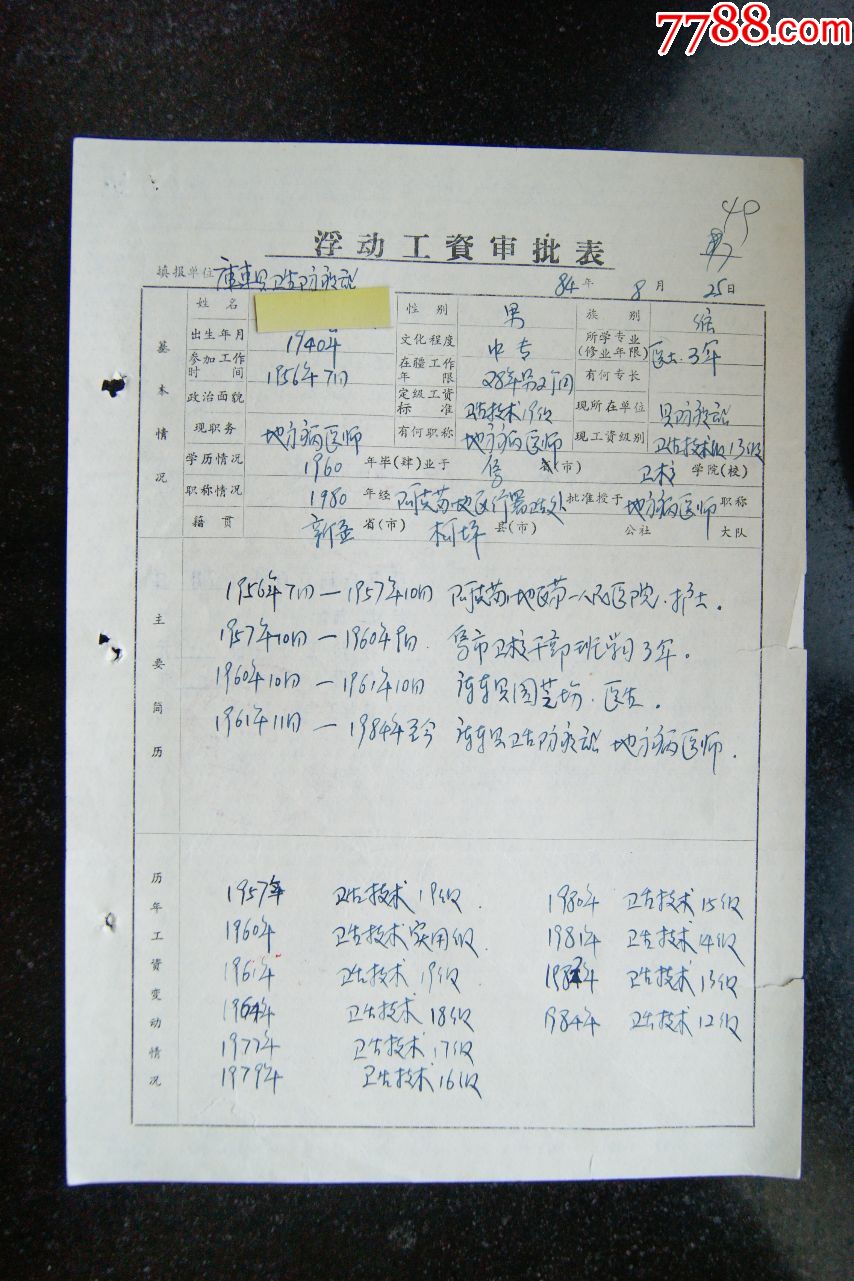 7788.com
49
浮动工資审批表
填报单位 库车县卫生防疫站 84年 8月 25日
基本情况
姓名 性别 男 族别 维
出生年月 1940年 文化程度 中专 所学专业(修业年限) 医士.3年
参加工作时间 1956年7月 在疆工作年限 28年另2个月 有何专长
政治面貌 定级工资标准 卫生技术19级 现所在单位 县防疫站
现职务 地方病医师 有何职称 地方病医师 现工资级别 卫生技术级13级
学历情况 1960 年毕(肄)业于 省(市) 卫校 学院(校)
职称情况 1980 年经 阿克苏地区行署卫生处 批准授于 地方病医师 职称
籍贯 新疆 省(市) 柯坪 县(市) 公社 大队
主要简历
1956年7月—1957年10月 阿克苏地区第一人民医院.护士.
1957年10月—1960年9月. 市卫校干部班学习3年.
1960年10月—1961年10月 库车县园艺场.医士.
1961年11月—1984年至今 库车县卫生防疫站 地方病医师.
历年工资变动情况
1957年 卫生技术19级. 1980年 卫生技术15级
1960年 卫生技术实用级. 1981年 卫生技术14级
1961年 卫生技术19级 卫生技术13级
1964年 卫生技术18级 1984年 卫生技术12级
1977年 卫生技术17级
1979年 卫生技术16级